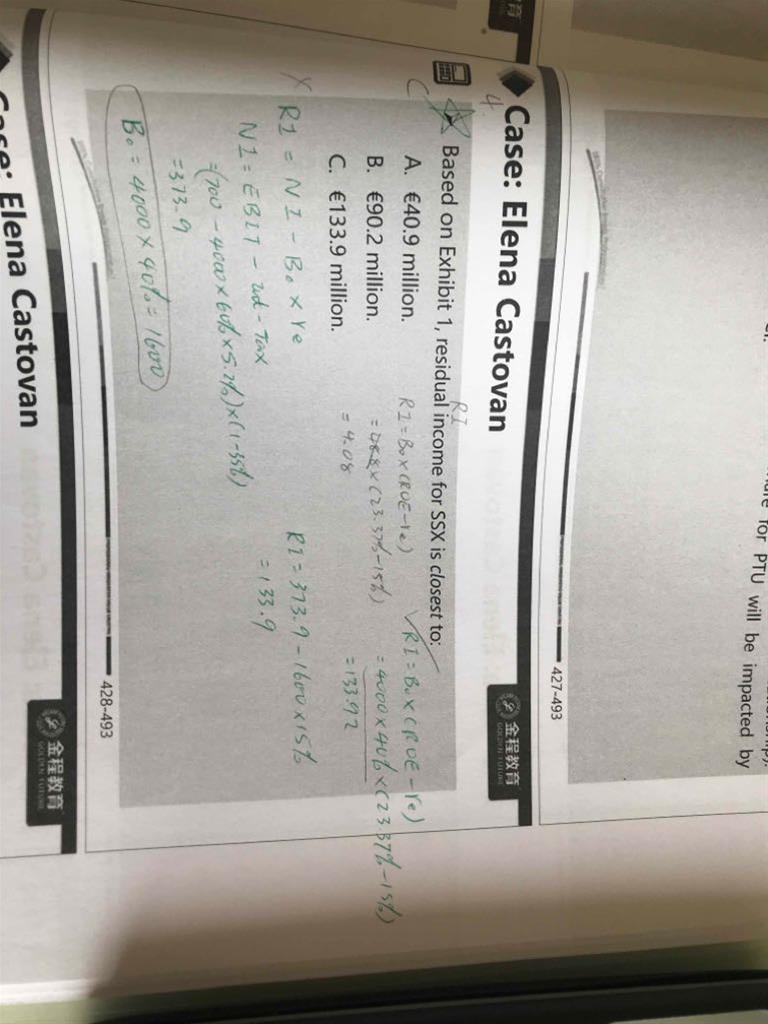 ture for PTU will be impacted by
427-493
Case: Elena Castovan
金程教育
GOLDEN FUTURE
4.
Based on Exhibit 1, residual income for SSX is closest to:
RI
A. €40.9 million.
B. €90.2 million.
C. €133.9 million.
RI = B₀ × (ROE - re)
× (23.37% - 15%)
= 4.08
RI = B₀ × (ROE - re)
= 4000 × 40% × (23.37% - 15%)
= 133.92
RI = NI - B₀ × re
NI = EBIT - - Tax
= (700 - 4000 × 60% × 5.2%) × (1 - 35%)
= 373.9
RI = 373.9 - 1600 × 15%
= 133.9
B₀ = 4000 × 40% = 1600
428-493
Case: Elena Castovan
金程教育
GOLDEN FUTURE